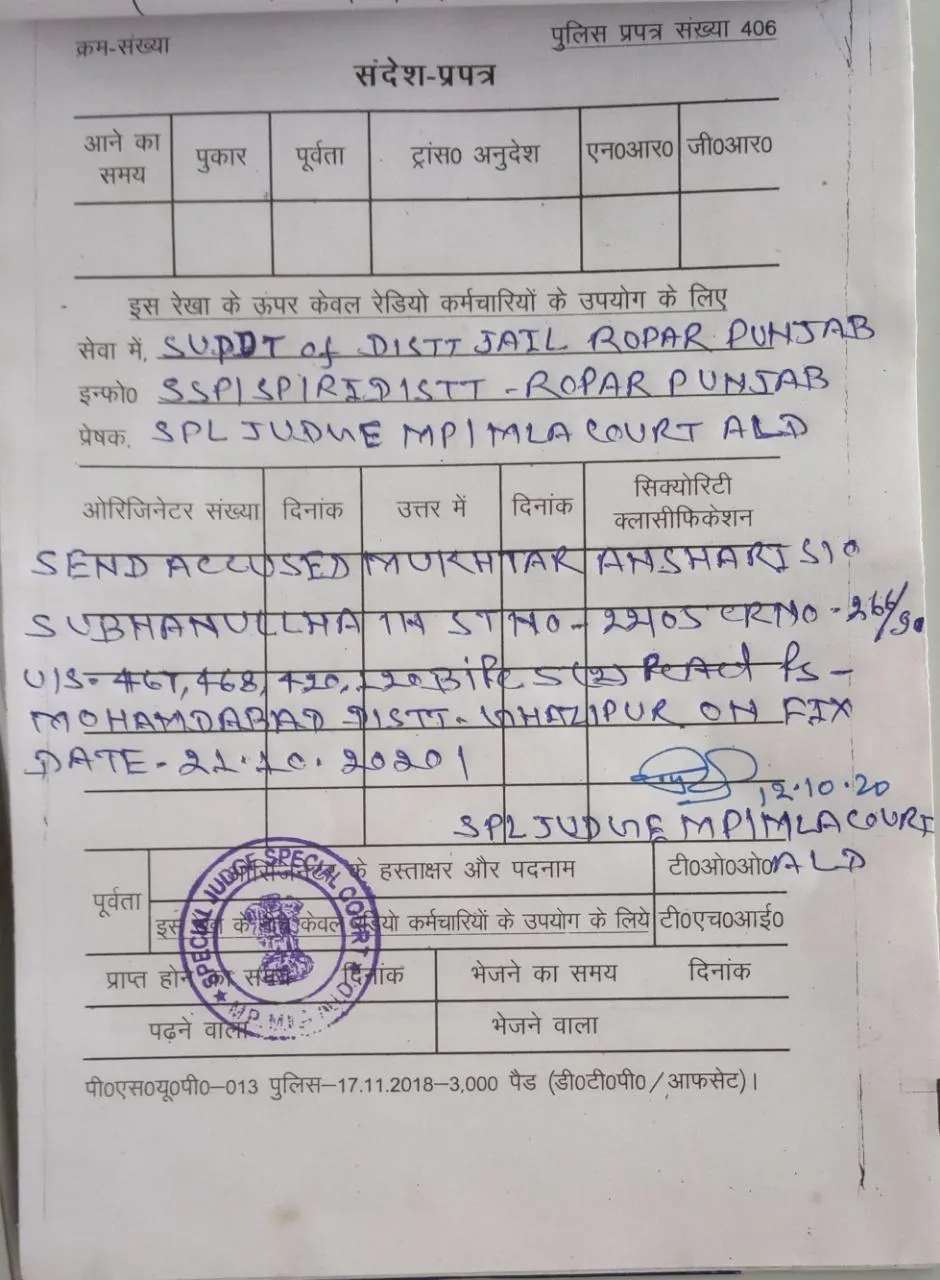 क्रम-संख्या पुलिस प्रपत्र संख्या 406
संदेश-प्रपत्र
आने का समय पुकार पूर्वता ट्रांस० अनुदेश एन०आर० जी०आर०
इस रेखा के ऊपर केवल रेडियो कर्मचारियों के उपयोग के लिए
सेवा में, SUPDT of DISTT JAIL ROPAR PUNJAB
इन्फो० SSP/SP/RI DISTT - ROPAR PUNJAB
प्रेषक, SPL JUDGE MP/MLA COURT ALD
ओरिजिनेटर संख्या दिनांक उत्तर में दिनांक सिक्योरिटी क्लासीफिकेशन
SEND ACCUSED MUKHTAR ANSHARI S/O
SUBHANULLHA IN ST NO- CR NO -
U/S- 467, 468, 420, 120B IPC 5(2) PS -
MOHAMDABAD DISTT- GHAZIPUR ON FIX
DATE - 21.10.2020/
12.10.20
SPL JUDGE MP/MLA COURT
ALD
पूर्वता ओरिजिनेटर के हस्ताक्षर और पदनाम टी०ओ०ओ०
इस रेखा के नीचे केवल रेडियो कर्मचारियों के उपयोग के लिये टी०एच०आई०
SPECIAL JUDGE SPECIAL COURT
प्राप्त होने का समय दिनांक भेजने का समय दिनांक
पढ़ने वाला भेजने वाला
पी०एस०यू०पी०–013 पुलिस–17.11.2018–3,000 पैड (डी०टी०पी०/आफसेट)।